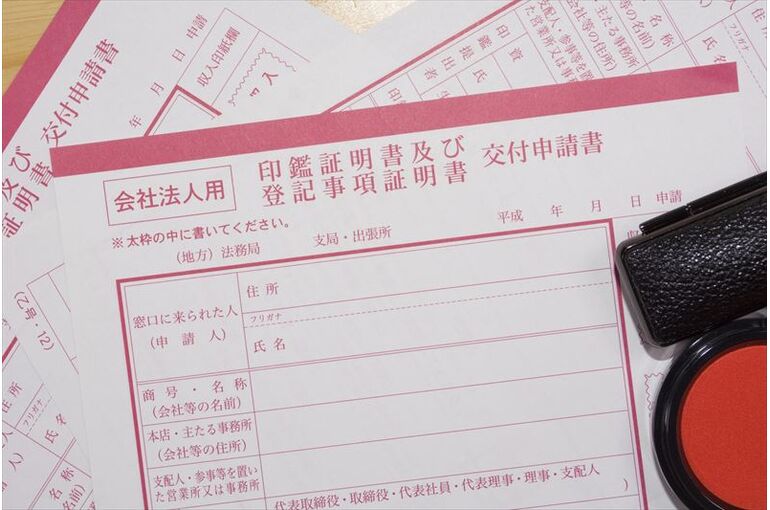 会社法人用
印鑑証明書及び
登記事項証明書
交付申請書
※太枠の中に書いてください。
(地方)法務局 支局・出張所 平成 年 月 日 申請
窓口に来られた人
(申請人)
住所
フリガナ
氏名
商号・名称
(会社等の名前)
本店・主たる事務所
(会社等の住所)
支配人・参事等を置い
た営業所又は事務所
代表取締役・取締役・代表社員・代表理事・理事・支配人
)
交付申請書
年 月 日 申請
収入印紙欄
及び
証明書
(乙号・12)
住所
フリガナ
氏名
名称
名前)
商号・名称
(会社等の名前)
本店・主たる事務所
(会社等の住所)
支配人・参事等を置い
た営業所又は事
フリガナ
氏名